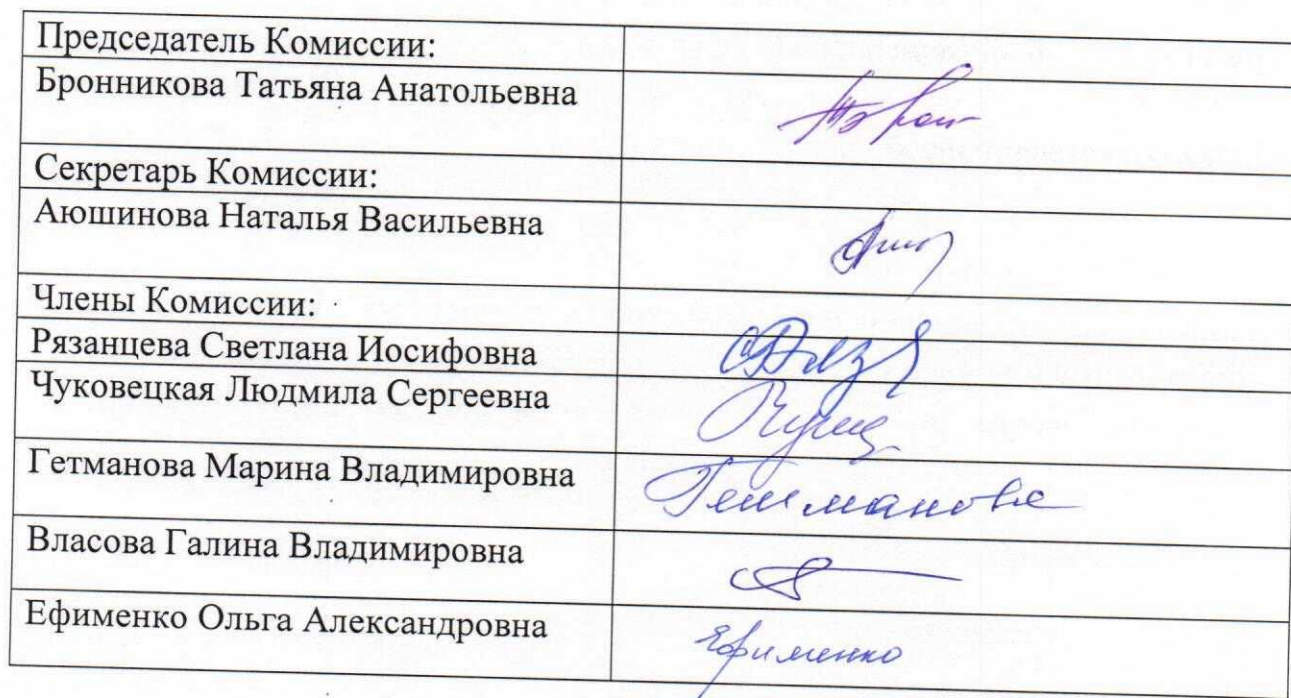 Председатель Комиссии:
Бронникова Татьяна Анатольевна
Секретарь Комиссии:
Аюшинова Наталья Васильевна
Члены Комиссии:
Рязанцева Светлана Иосифовна
Чуковецкая Людмила Сергеевна
Гетманова Марина Владимировна Гетманова
Власова Галина Владимировна
Ефименко Ольга Александровна Ефименко